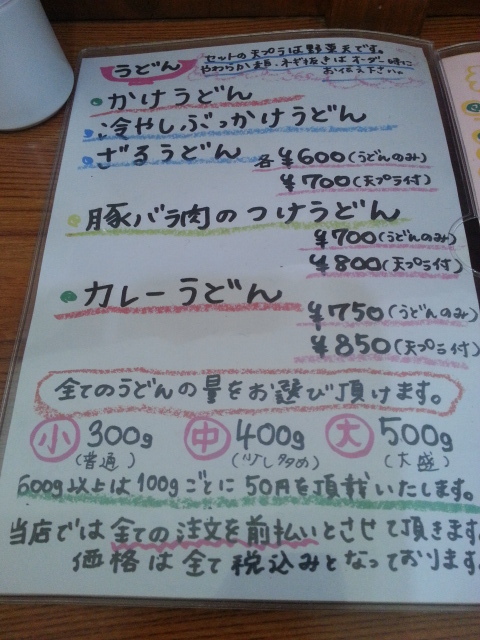 うどん
セットの天プラは野菜天です。
やわらか麺、ネギ抜きはオーダー時に
お伝え下さい。
かけうどん
冷やしぶっかけうどん
ざるうどん 各¥600(うどんのみ)
¥700(天プラ付)
豚バラ肉のつけうどん
¥700(うどんのみ)
¥800(天プラ付)
カレーうどん ¥750(うどんのみ)
¥850(天プラ付)
全てのうどんの量をお選び頂けます。
小 300g 中 400g 大 500g
(普通) (少し多め) (大盛)
600g以上は100gごとに50円を頂戴いたします。
当店では全ての注文を前払いとさせて頂きます
価格は全て税込みとなっております。